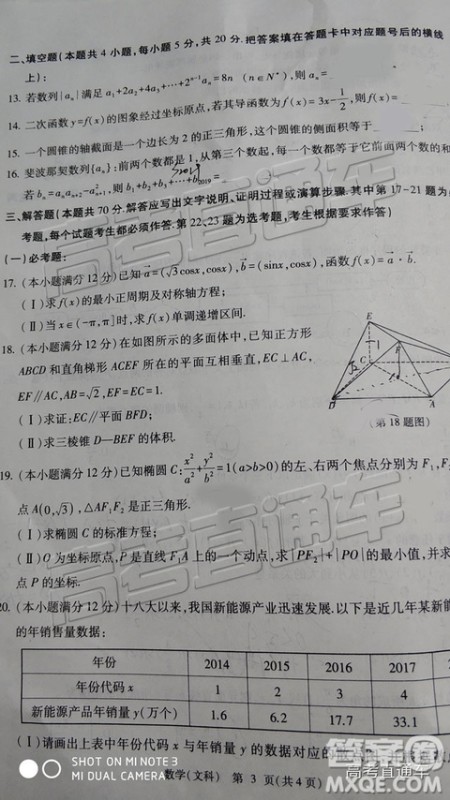 二、填空题(本题共4小题,每小题5分,共20分.把答案填在答题卡中对应题号后的横线
上):
13. 若数列{aₙ}满足 a₁+2a₂+4a₃+⋯+2ⁿ⁻¹aₙ=8n (n∈N*),则 aₙ=
14. 二次函数 y=f(x)的图象经过坐标原点,若其导函数为 f'(x)=3x-1/2,则 f(x)=
15. 一个圆锥的轴截面是一个边长为2的正三角形,这个圆锥的侧面积等于
16. 斐波那契数列{aₙ}:前两个数都是1,从第三个数起,每一个数都等于它前面两个数的和
若 bₙ=aₙaₙ₊₂-a²ₙ₊₁,则 b₁+b₂+b₃+⋯+b₂₀₁₉=
三、解答题(本题共70分.解答应写出文字说明、证明过程或演算步骤.其中第17-21题为
考题,每个试题考生都必须作答.第22、23题为选考题,考生根据要求作答)
(一)必考题:
17. (本小题满分12分)已知 a=(√3cosx,cosx),b=(sinx,cosx),函数 f(x)=a·b.
(Ⅰ)求 f(x)的最小正周期及对称轴方程;
(Ⅱ)当 x∈(-π,π]时,求 f(x)单调递增区间.
18. (本小题满分12分)在如图所示的多面体中,已知正方形
ABCD 和直角梯形 ACEF 所在的平面互相垂直,EC⊥AC,
EF∥AC,AB=√2,EF=EC=1.
(Ⅰ)求证:EC∥平面 BFD;
(Ⅱ)求三棱锥 D—BEF 的体积.
E
F
C
D
A
(第18题图)
19. (本小题满分12分)已知椭圆 C:x²/a²+y²/b²=1(a>b>0)的左、右两个焦点分别为 F₁,F
点 A(0,√3),△AF₁F₂是正三角形.
(Ⅰ)求椭圆 C 的标准方程;
(Ⅱ)O 为坐标原点,P 是直线 F₁A 上的一个动点,求 |PF₂|+|PO|的最小值,并求
点 P 的坐标.
20. (本小题满分12分)十八大以来,我国新能源产业迅速发展.以下是近几年某新
的年销售量数据:
年份 2014 2015 2016 2017
年份代码 x 1 2 3 4
新能源产品年销量 y(万个) 1.6 6.2 17.7 33.1
(Ⅰ)请画出上表中年份代码 x 与年销量 y 的数据对应的
数学(文科) 第 3 页(共4页)
SHOT ON MI NOTE 3
MI DUAL CAMERA
高考直通车
高考直通车
高考直通车
答案圈